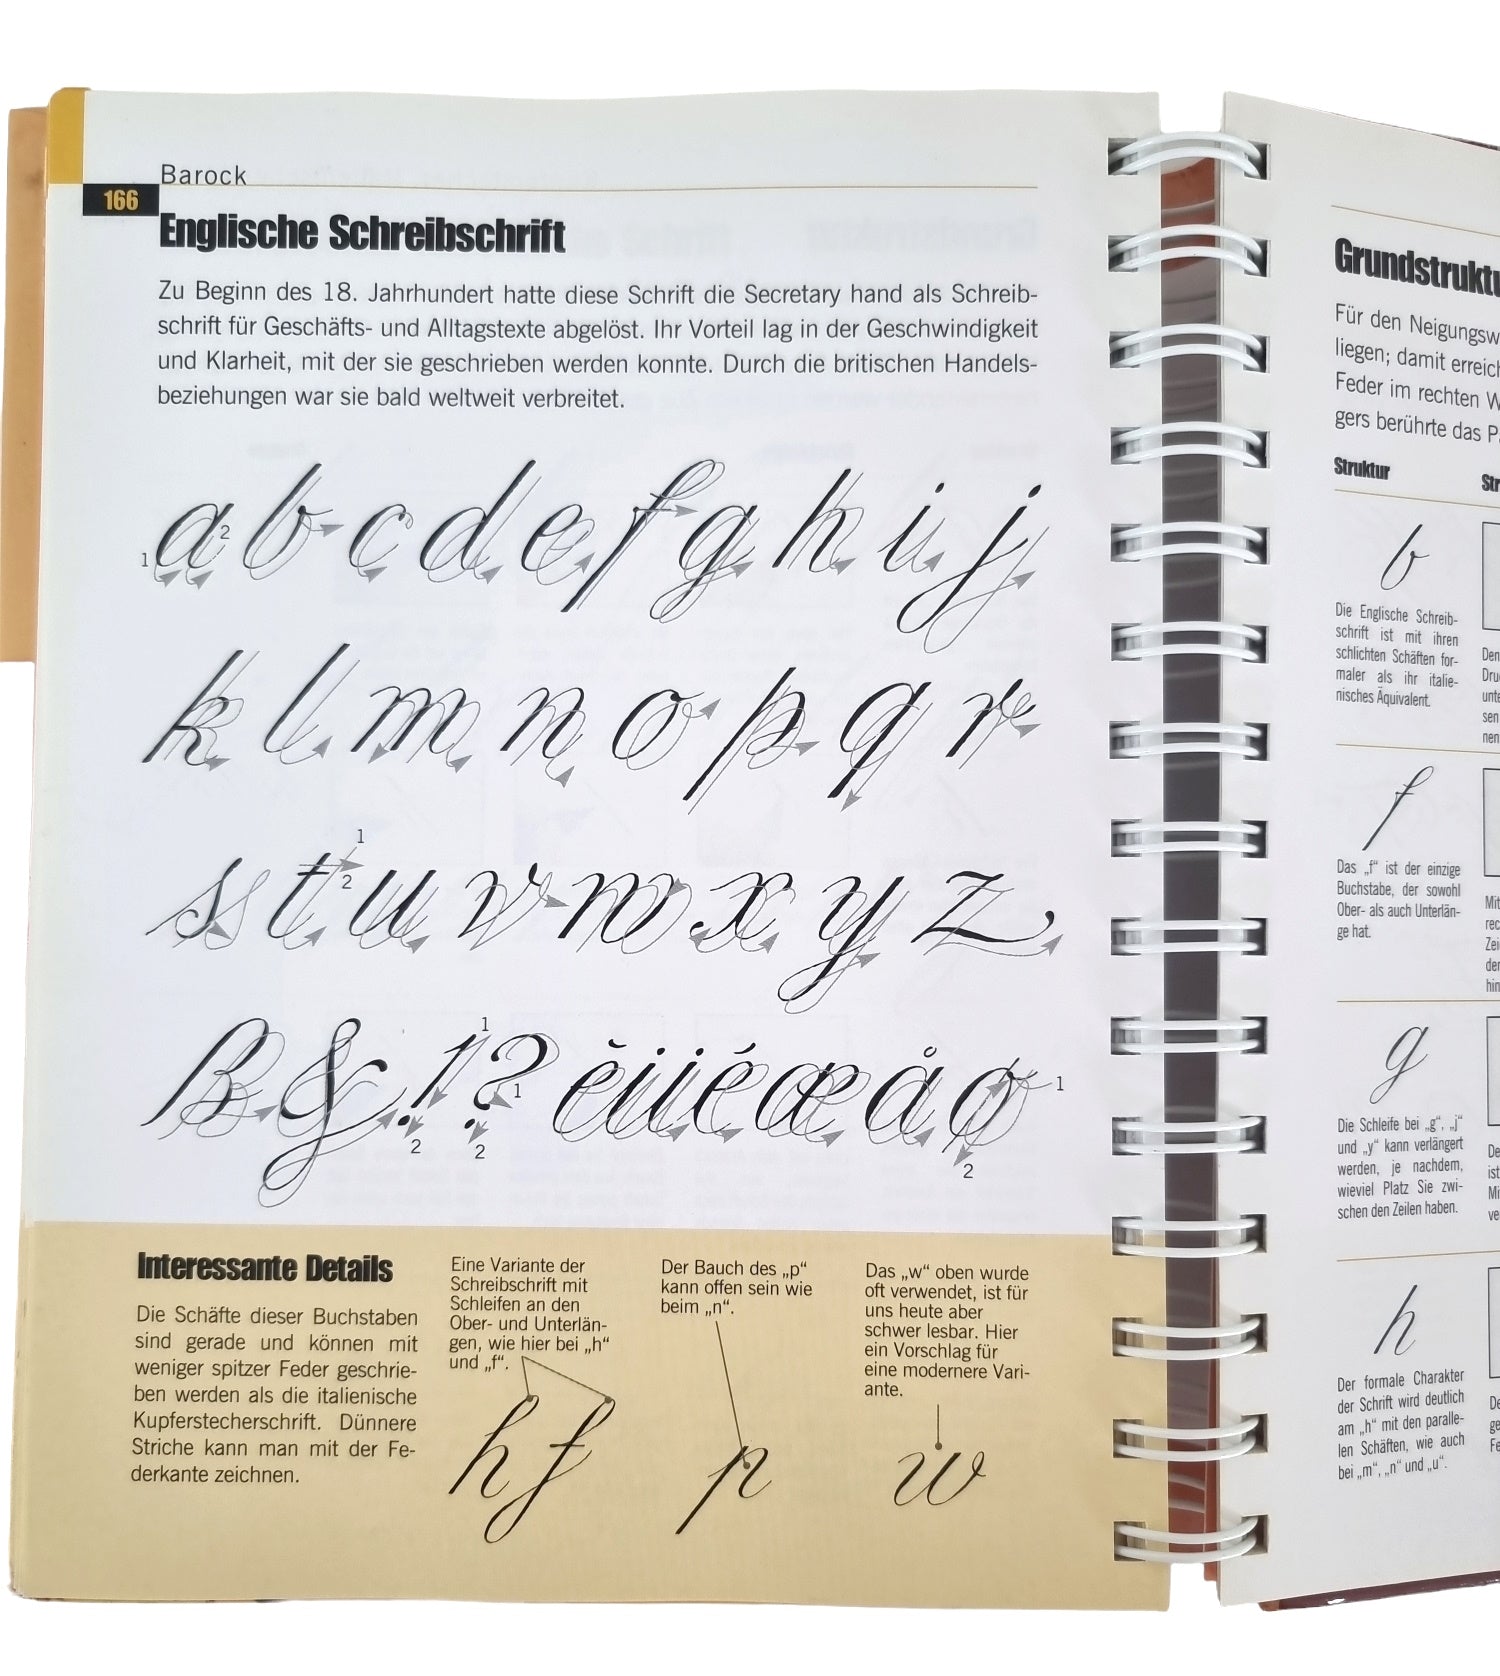 Barock
166
Englische Schreibschrift
Zu Beginn des 18. Jahrhundert hatte diese Schrift die Secretary hand als Schreib-
schrift für Geschäfts- und Alltagstexte abgelöst. Ihr Vorteil lag in der Geschwindigkeit
und Klarheit, mit der sie geschrieben werden konnte. Durch die britischen Handels-
beziehungen war sie bald weltweit verbreitet.
1 a 2 b c d e f g h i j
k l m n o p q r
s t 1 2 u v w x y z
ß & ! 2 ? 1 1 2 è ü é æ å ø 1 2
Interessante Details
Die Schäfte dieser Buchstaben
sind gerade und können mit
weniger spitzer Feder geschrie-
ben werden als die italienische
Kupferstecherschrift. Dünnere
Striche kann man mit der Fe-
derkante zeichnen.
Eine Variante der
Schreibschrift mit
Schleifen an den
Ober- und Unterlän-
gen, wie hier bei „h“
und „f“.
h f
Der Bauch des „p“
kann offen sein wie
beim „n“.
p
Das „w“ oben wurde
oft verwendet, ist für
uns heute aber
schwer lesbar. Hier
ein Vorschlag für
eine modernere Vari-
ante.
w
Grundstruktu
Für den Neigungsw
liegen; damit erreich
Feder im rechten W
gers berührte das P
Struktur
Str
b
Die Englische Schreib-
schrift ist mit ihren
schlichten Schäften for-
maler als ihr italie-
nisches Äquivalent.
Den
Dru
unte
sen
nen
f
Das „f“ ist der einzige
Buchstabe, der sowohl
Ober- als auch Unterlän-
ge hat.
Mit
rec
Zei
der
hin
g
Die Schleife bei „g“, „j“
und „y“ kann verlängert
werden, je nachdem,
wieviel Platz Sie zwi-
schen den Zeilen haben.
De
ist
Mi
ve
h
Der formale Charakter
der Schrift wird deutlich
am „h“ mit den paralle-
len Schäften, wie auch
bei „m“, „n“ und „u“.
De
ge
Fe